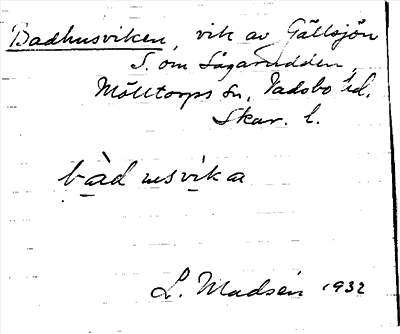 Badhusviken, vik av Gällsjön
S. om Sågarudden,
Mölltorps sn, Vadsbo hd.
Skar. l.
bàd usvìka
L. Madsén 1932